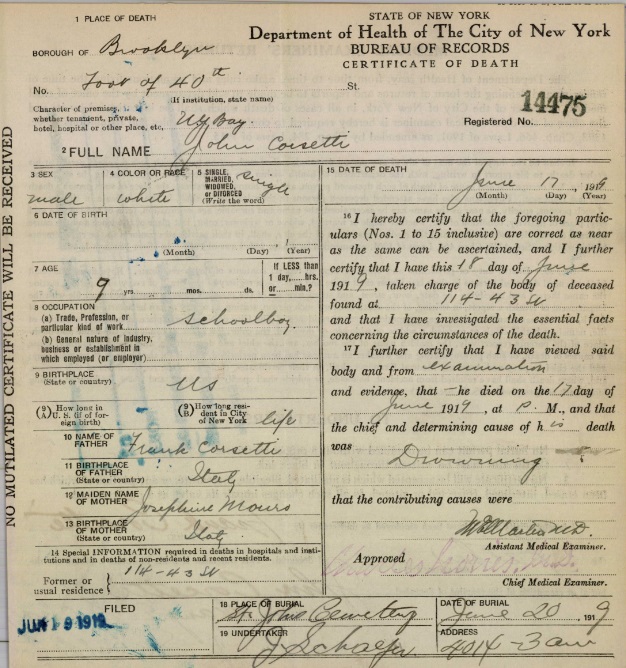 1 PLACE OF DEATH
STATE OF NEW YORK
Department of Health of The City of New York
BUREAU OF RECORDS
CERTIFICATE OF DEATH
BOROUGH OF Brooklyn
No. Foot of 40th St.
(If institution, state name)
Character of premises,
whether tenement, private,
hotel, hospital or other place, etc. NY Bay
14475
Registered No.
2 FULL NAME John Corsetti
3 SEX
male
4 COLOR OR RACE
white
5 SINGLE,
MARRIED,
WIDOWED,
or DIVORCED
(Write the word)
single
6 DATE OF BIRTH
(Month) (Day) (Year)
7 AGE
9 yrs. mos. ds.
If LESS than
1 day,....hrs.
or....min.?
8 OCCUPATION
(a) Trade, Profession, or
particular kind of work
Schoolboy
(b) General nature of industry,
business or establishment in
which employed (or employer)
9 BIRTHPLACE
(State or country)
US
(9 A) How long in
U. S. (if of for-
eign birth)
(9 B) How long resi-
dent in City
of New York life
10 NAME OF
FATHER Frank Corsetti
11 BIRTHPLACE
OF FATHER
(State or country) Italy
12 MAIDEN NAME
OF MOTHER Josephine
13 BIRTHPLACE
OF MOTHER
(State or country) Italy
14 Special INFORMATION required in deaths in hospitals and insti-
tutions and in deaths of non-residents and recent residents.
Former or
usual residence 114-43 St
15 DATE OF DEATH
June 17, 1919
(Month) (Day) (Year)
16 I hereby certify that the foregoing partic-
ulars (Nos. 1 to 15 inclusive) are correct as near
as the same can be ascertained, and I further
certify that I have this 18 day of June
1919, taken charge of the body of deceased
found at 114-43 St
and that I have investigated the essential facts
concerning the circumstances of the death.
17 I further certify that I have viewed said
body and from examination
and evidence, that he died on the 17 day of
June 1919, at P. M., and that
the chief and determining cause of his death
was
Drowning
that the contributing causes were
M.D.
Assistant Medical Examiner.
Approved
Chief Medical Examiner.
FILED
JUN 19 1919
18 PLACE OF BURIAL
St. Johns Cemetery
DATE OF BURIAL
June 20 1919
19 UNDERTAKER
J Schaefer
ADDRESS
4014-3 ave
NO MUTILATED CERTIFICATE WILL BE RECEIVED